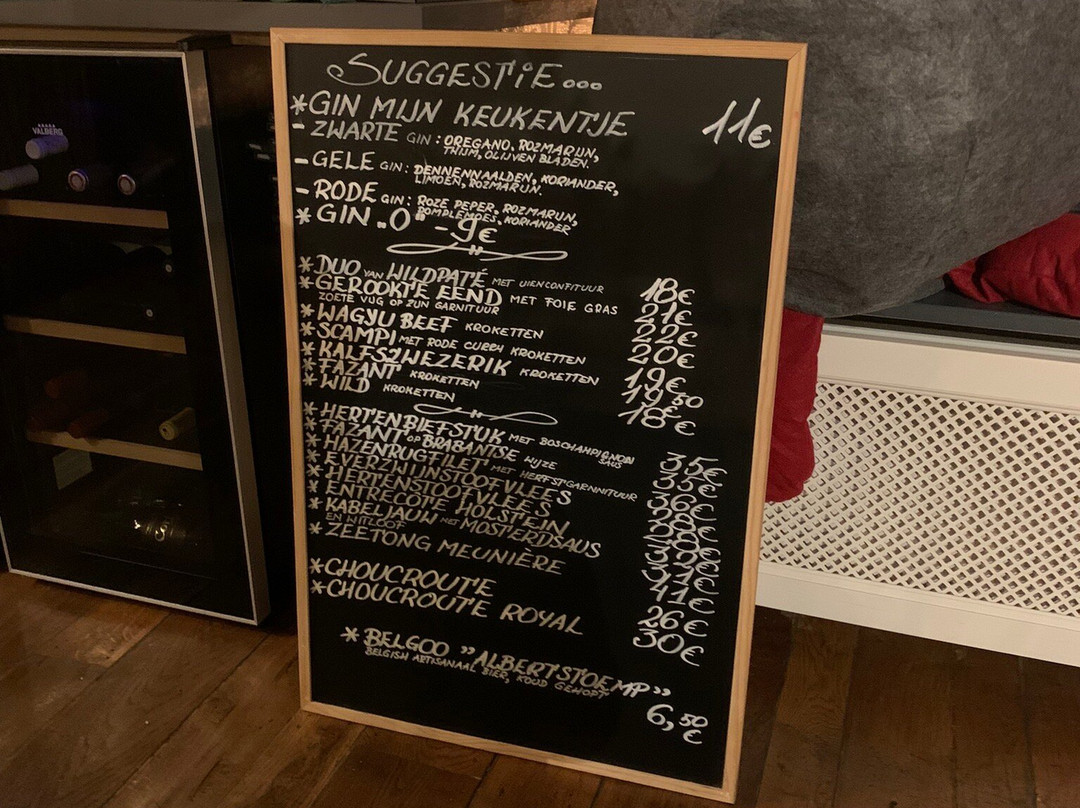 VALBERG
SUGGESTIE...
*GIN MIJN KEUKENTJE 11€
- ZWARTE GIN: OREGANO, ROZMARIJN,
THIJM, OLIJVEN BLADEN.
- GELE GIN: DENNENNAALDEN, KORIANDER,
LIMOEN, ROZMARIJN.
- RODE GIN: ROZE PEPER, ROZMARIJN,
POMPLEMOES, KORIANDER
* GIN „O" - 9€
*DUO VAN WILDPATÉ MET UIENCONFITUUR 18€
*GEROOKTE EEND MET FOIE GRAS 21€
ZOETE VIJG OP ZIJN GARNITUUR
*WAGYU BEEF KROKETTEN 22€
*SCAMPI MET RODE CURRY KROKETTEN 20€
*KALFSZWEZERIK KROKETTEN 19€
*FAZANT KROKETTEN 19,50
*WILD KROKETTEN 18€
*HERTENBIEFSTUK MET BOSCHAMPIGNON
SAUS 35€
*FAZANT OP BRABANTSE WIJZE 35€
*HAZENRUGFILET MET HERFSTGARNNITUUR 36€
*EVERZWIJNSTOOFVLEES
*HERTENSTOOFVLEES
*ENTRECOTE HOLSTEIN
*KABELJAUW MET MOSTERDSAUS
EN WITLOOF 41€
*ZEETONG MEUNIÈRE 41€
*CHOUCROUTE 26€
*CHOUCROUTE ROYAL 30€
* BELGOO "ALBERTSTOEMP"
BELGISH ARTISANAAL BIER, KOUD GEHOPT
6,50
€